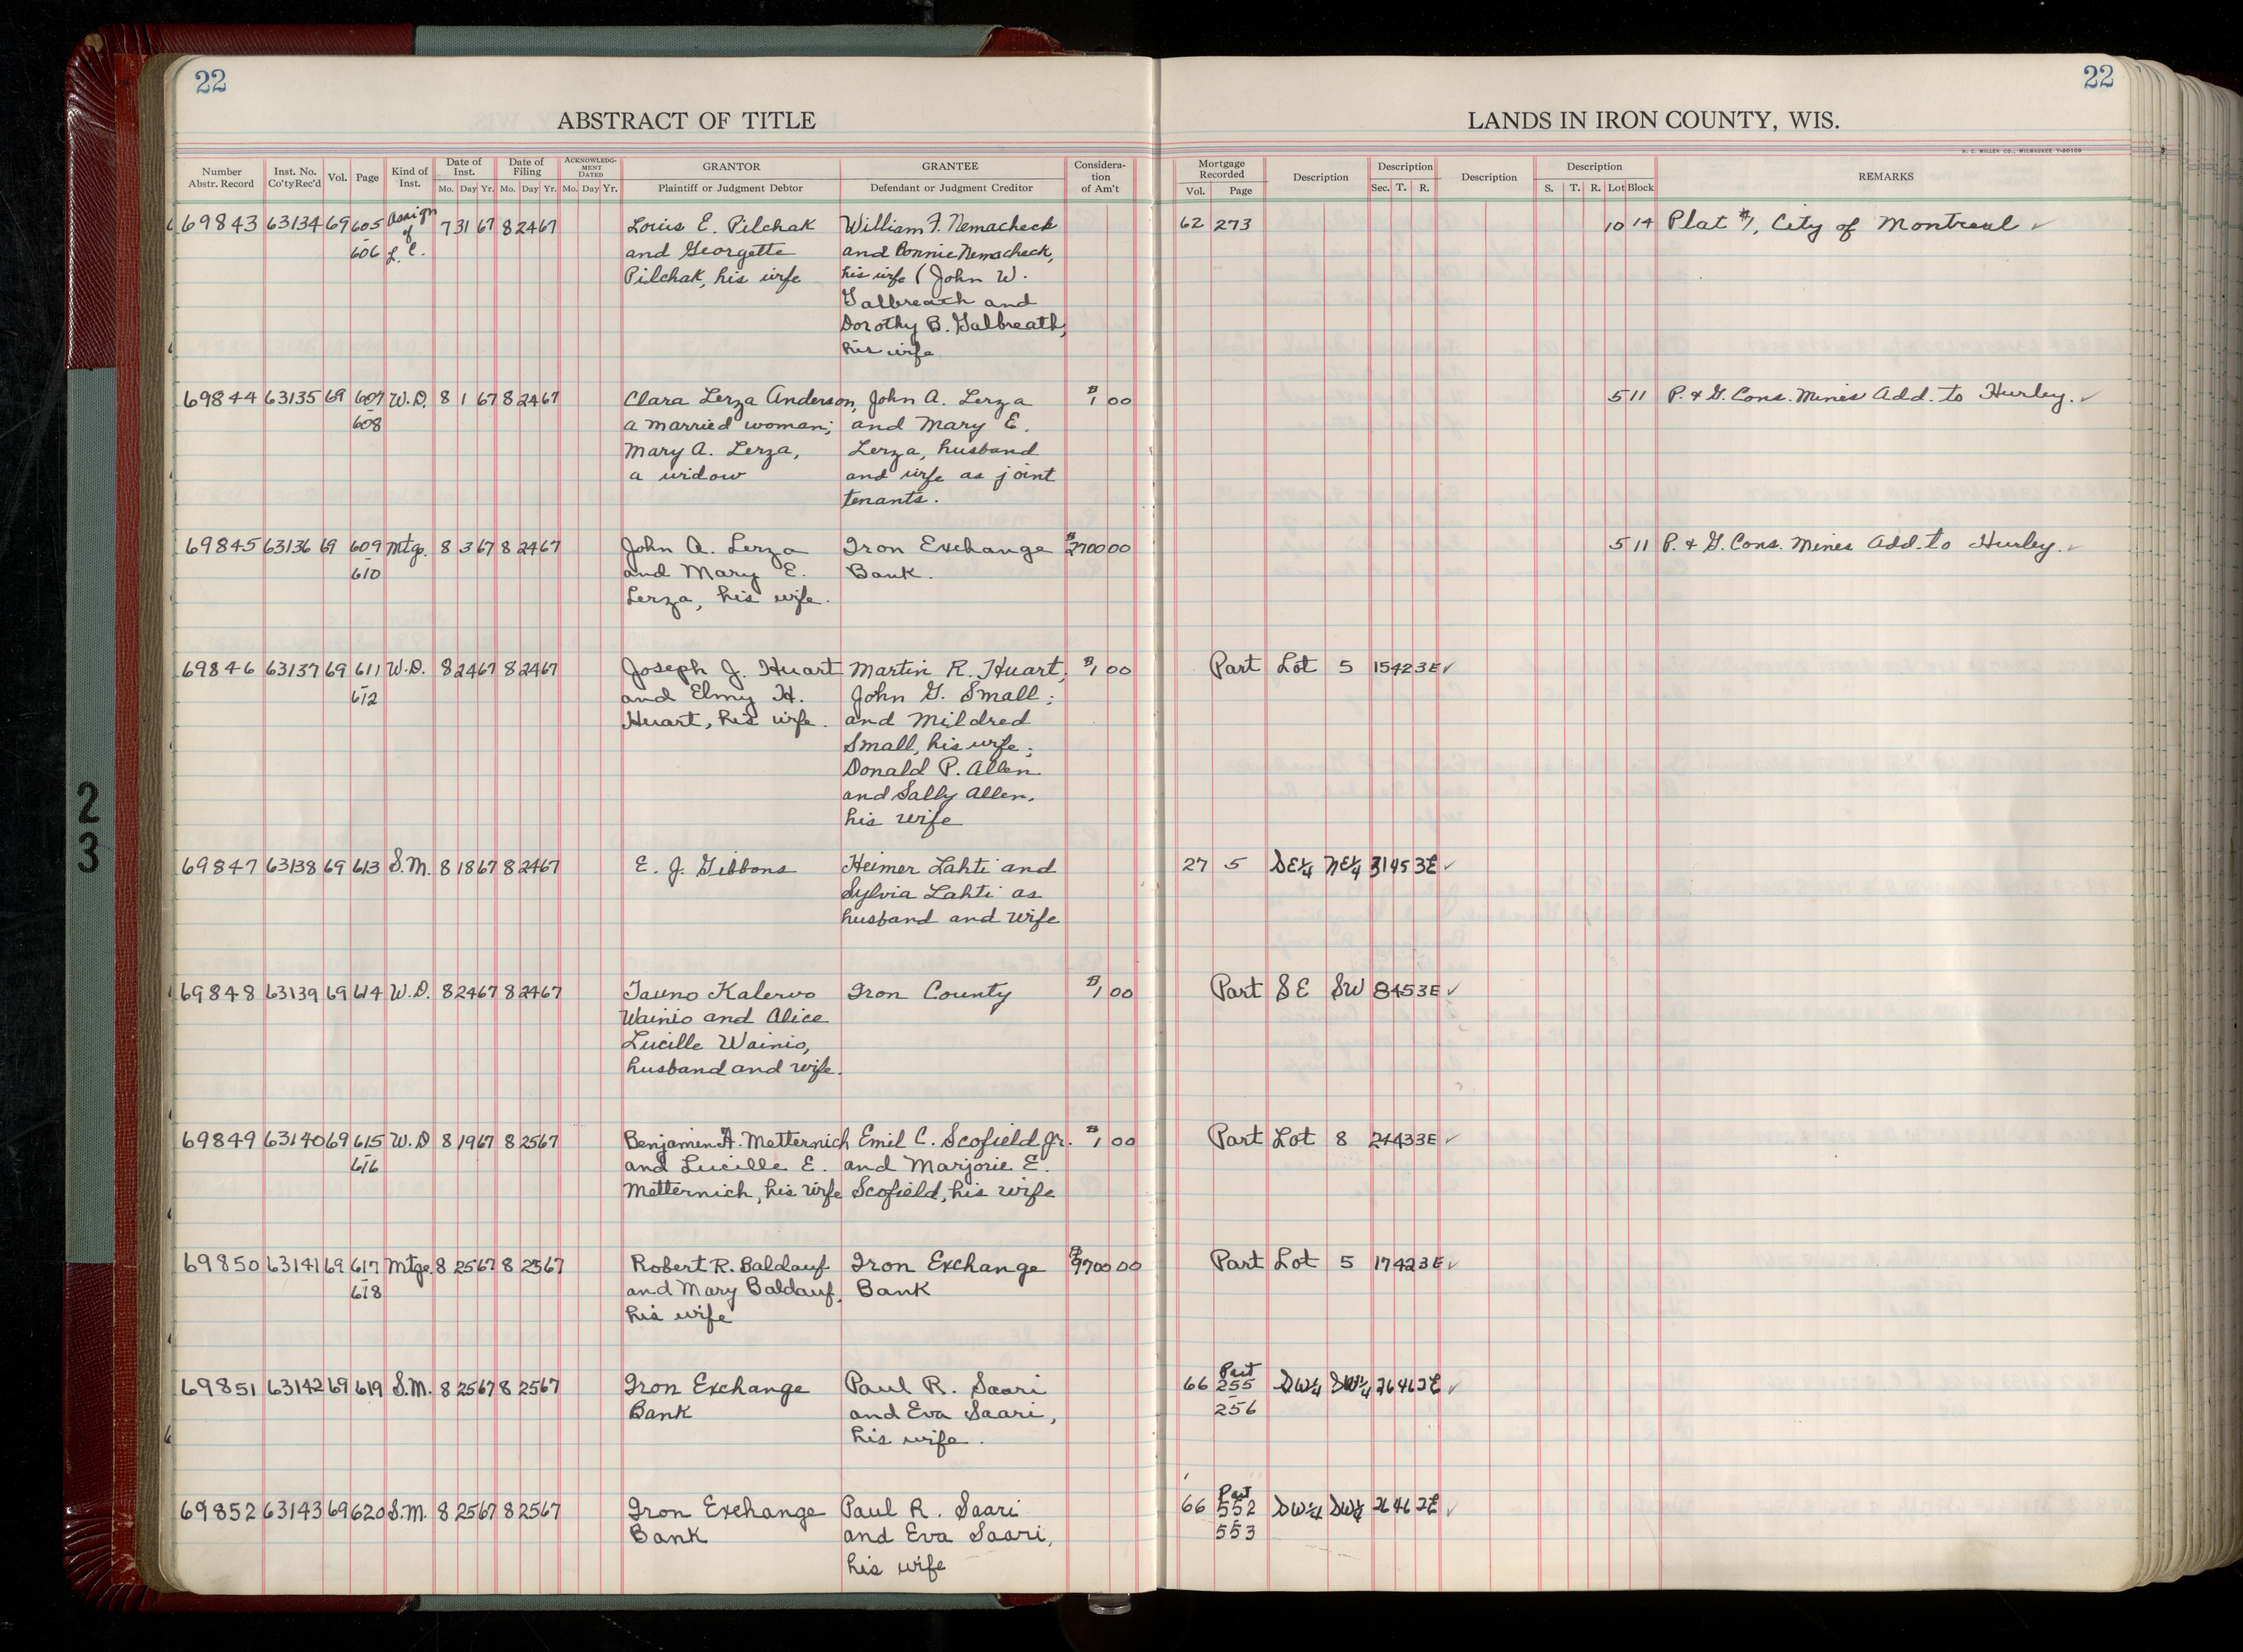 22
ABSTRACT OF TITLE
Number Abstr. Record Inst. No. Co'ty Rec'd Vol. Page Kind of Inst. Date of Inst. Mo. Day Yr. Date of Filing Mo. Day Yr. ACKNOWLEDGMENT DATED Mo. Day Yr. GRANTOR Plaintiff or Judgment Debtor GRANTEE Defendant or Judgment Creditor Consideration of Am't
69843 63134 69 605 Assign 7 31 67 8 24 67 Louis E. Pilchak William F. Nemacheck
of and Georgette and Bonnie Nemacheck,
606 L.C. Pilchak, his wife his wife (John W.
Galbreath and
Dorothy B. Galbreath,
his wife
69844 63135 69 607 W.D. 8 1 67 8 24 67 Clara Lerza Anderson, John A. Lerza $1 00
608 a married woman; and Mary E.
Mary A. Lerza, Lerza, husband
a widow and wife as joint
tenants.
69845 63136 69 609 Mtg. 8 3 67 8 24 67 John A. Lerza Iron Exchange $2700 00
610 and Mary E. Bank.
Lerza, his wife.
69846 63137 69 611 W.D. 8 24 67 8 24 67 Joseph J. Huart Martin R. Huart; $1 00
612 and Elmy H. John G. Small;
Huart, his wife. and Mildred
Small, his wife;
Donald P. Allen
and Sally Allen,
his wife
69847 63138 69 613 S.M. 8 18 67 8 24 67 E. J. Gibbons Heimer Lahti and
Sylvia Lahti as
husband and wife
69848 63139 69 614 W.D. 8 24 67 8 24 67 Tauno Kalervo Iron County $1 00
Wainio and Alice
Lucille Wainio,
husband and wife.
69849 63140 69 615 W.D 8 19 67 8 25 67 Benjamin A. Metternich Emil C. Scofield, Jr. $1 00
616 and Lucille E. and Marjorie E.
Metternich, his wife Scofield, his wife
69850 63141 69 617 Mtge. 8 25 67 8 25 67 Robert R. Baldauf Iron Exchange $9700 00
618 and Mary Baldauf, Bank
his wife
69851 63142 69 619 S.M. 8 25 67 8 25 67 Iron Exchange Paul R. Saari
Bank and Eva Saari,
his wife.
69852 63143 69 620 S.M. 8 25 67 8 25 67 Iron Exchange Paul R. Saari
Bank and Eva Saari,
his wife
22
LANDS IN IRON COUNTY, WIS.
H. C. MILLER CO., MILWAUKEE
Mortgage Recorded Vol. Page Description Description Sec. T. R. Description Description S. T. R. Lot Block REMARKS
62 273 10 14 Plat #1, City of Montreal ✓
5 11 P. & G. Cons. Mines Add. to Hurley. ✓
5 11 P. & G. Cons. Mines Add. to Hurley. ✓
Part Lot 5 15 42 3E ✓
27 5 SE¼ NE¼ 31 45 3E ✓
Part SE SW 8 45 3E ✓
Part Lot 8 24 43 3E ✓
Part Lot 5 17 42 3E ✓
Part
66 255 SW¼ SW¼ 26 46 2E ✓
256
Part
66 552 SW¼ SW¼ 26 46 2E ✓
553
2
3